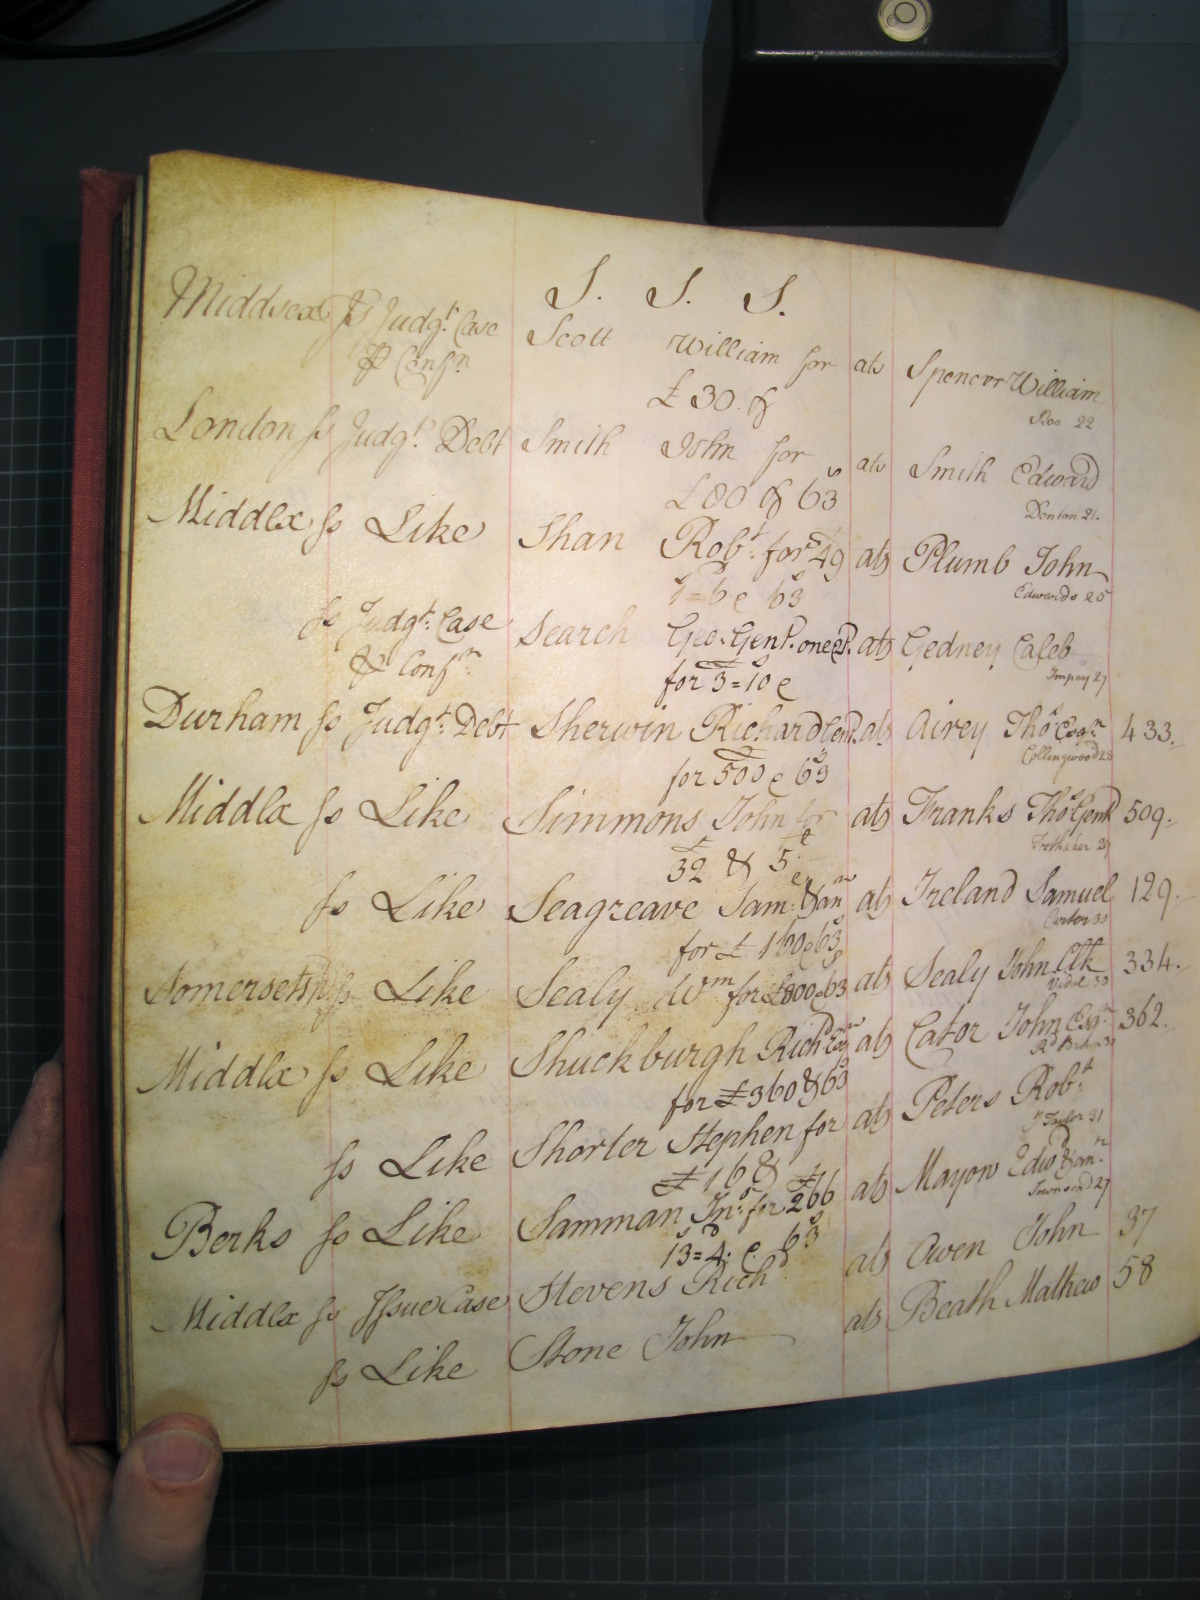 S. S. S.
Middsex ss Judgt. Case Scott William for ats Spencer William
& Consn £30 & Roe 22
London ss Judgt. Debt Smith John for ats Smith Edward
£80 & 63s Denton 21.
Middlx ss Like Shan Robt. for £49 ats Plumb John
1s=6 & 63s Edwards 25
ss Judgt. Case Search Geo. Gent. one &c. ats Gedney Caleb
& Consn. for £3=10 & Impey 27
Durham ss Judgt. Debt Sherwin Richard Gent. ats Airey Thos Esqr. 433.
for £500 & 63s Collingwood 28
Middlx ss Like Simmons John for ats Franks Thos Gent 509.
£32 & £5.
ss Like Seagreave Sam. & an ats Ireland Samuel 129.
for £160 & 63s Carter 30
Somersetsh ss Like Sealy Wm for £800 & 63s ats Sealy John Clk 334.
Middlx ss Like Shuckburgh Richd Esqr ats Cator John Esqr. 362.
for £360 & 63s
ss Like Shorter Stephen for ats Peters Robt.
£16 & Taylor 31
Berks ss Like Samman Jns. for £266 ats Mayow Edwd & anr.
13s=4d. & 63s Townsend 27
Middlx ss Issue Case Stevens Richd ats Owen John 37
ss Like Stone John ats Beath Mathew 58